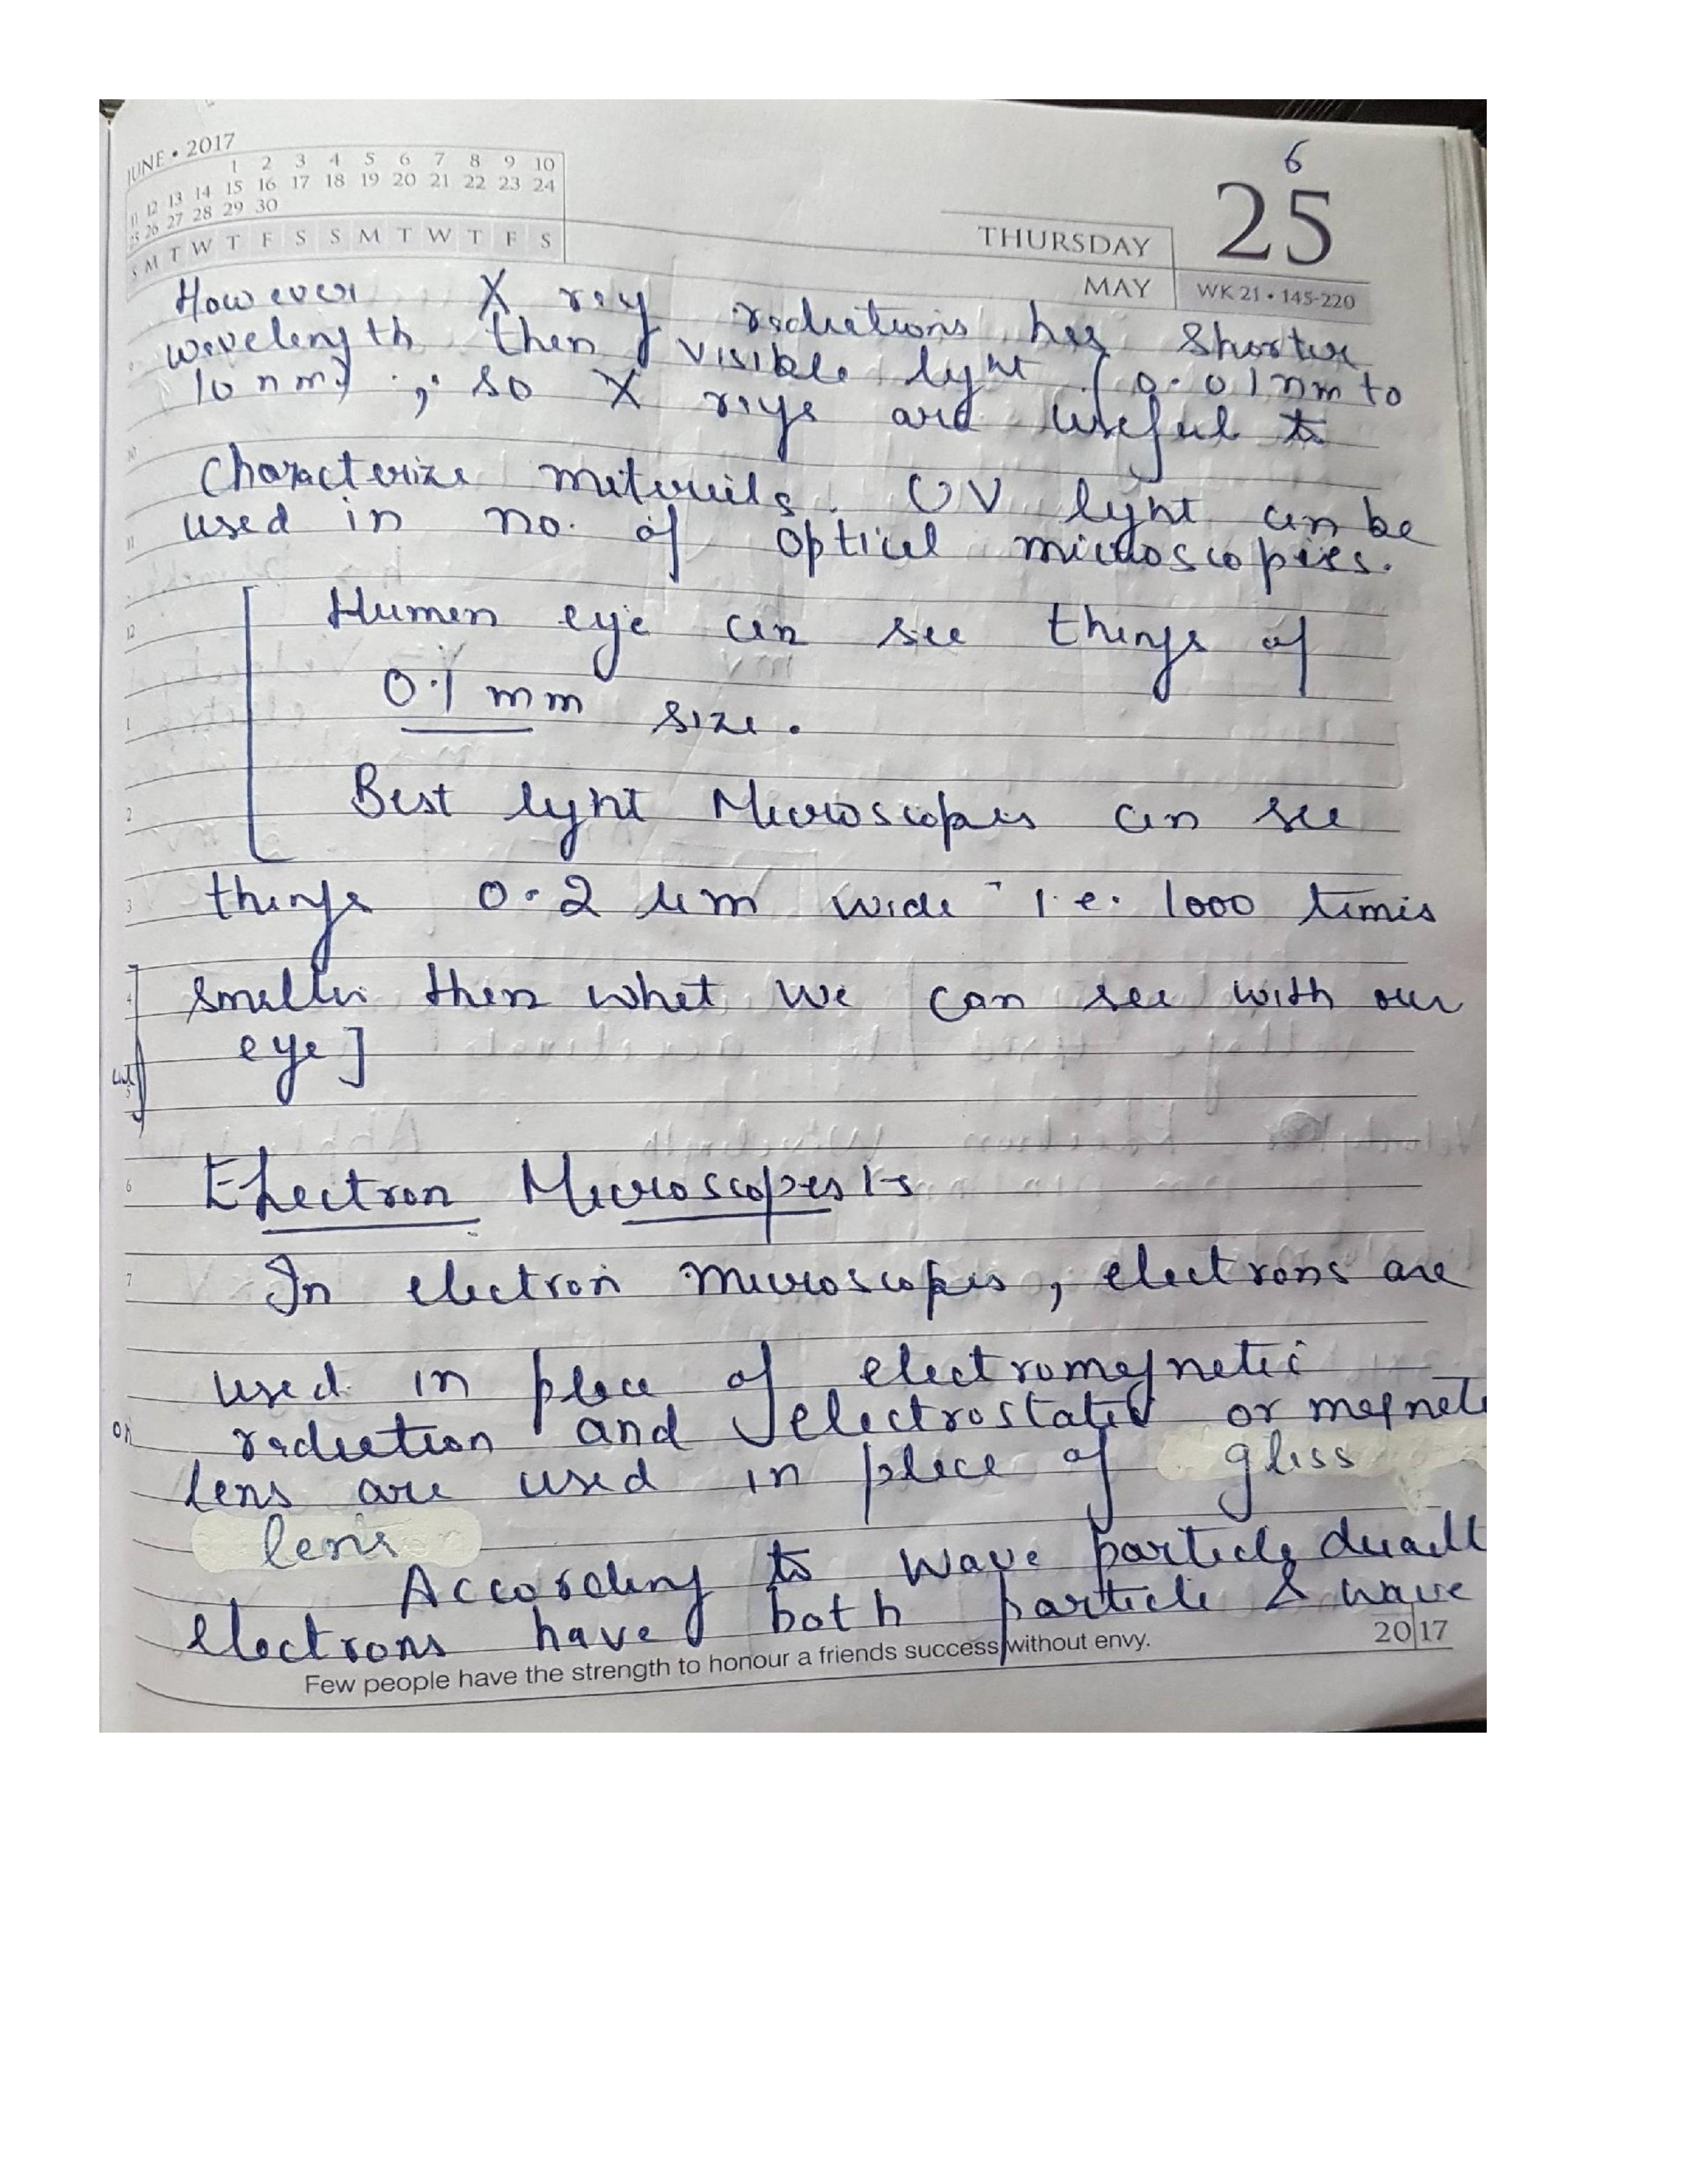 JUNE • 2017
1 2 3 4 5 6 7 8 9 10
11 12 13 14 15 16 17 18 19 20 21 22 23 24
25 26 27 28 29 30
S M T W T F S S M T W T F S
6
25
THURSDAY
MAY WK 21 • 145-220
However X ray radiations has shorter
wavelength then visible light (0.01nm to
10 nm) ; so X rays are useful to
Characterize materials. UV light can be
used in no. of optical microscopies.
Human eye can see things of
0.1 mm size.
Best light Microscopes can see
things 0.2 um wide i.e. 1000 times
smaller then what we can see with our
eye]
Electron Microscopes :-
In electron microscopes, electrons are
used in place of electromagnetic
radiation and electrostatic or magnetic
lens are used in place of glass
lens
According to wave particle
electrons have both particle & wave
Few people have the strength to honour a friends success without envy.
2017